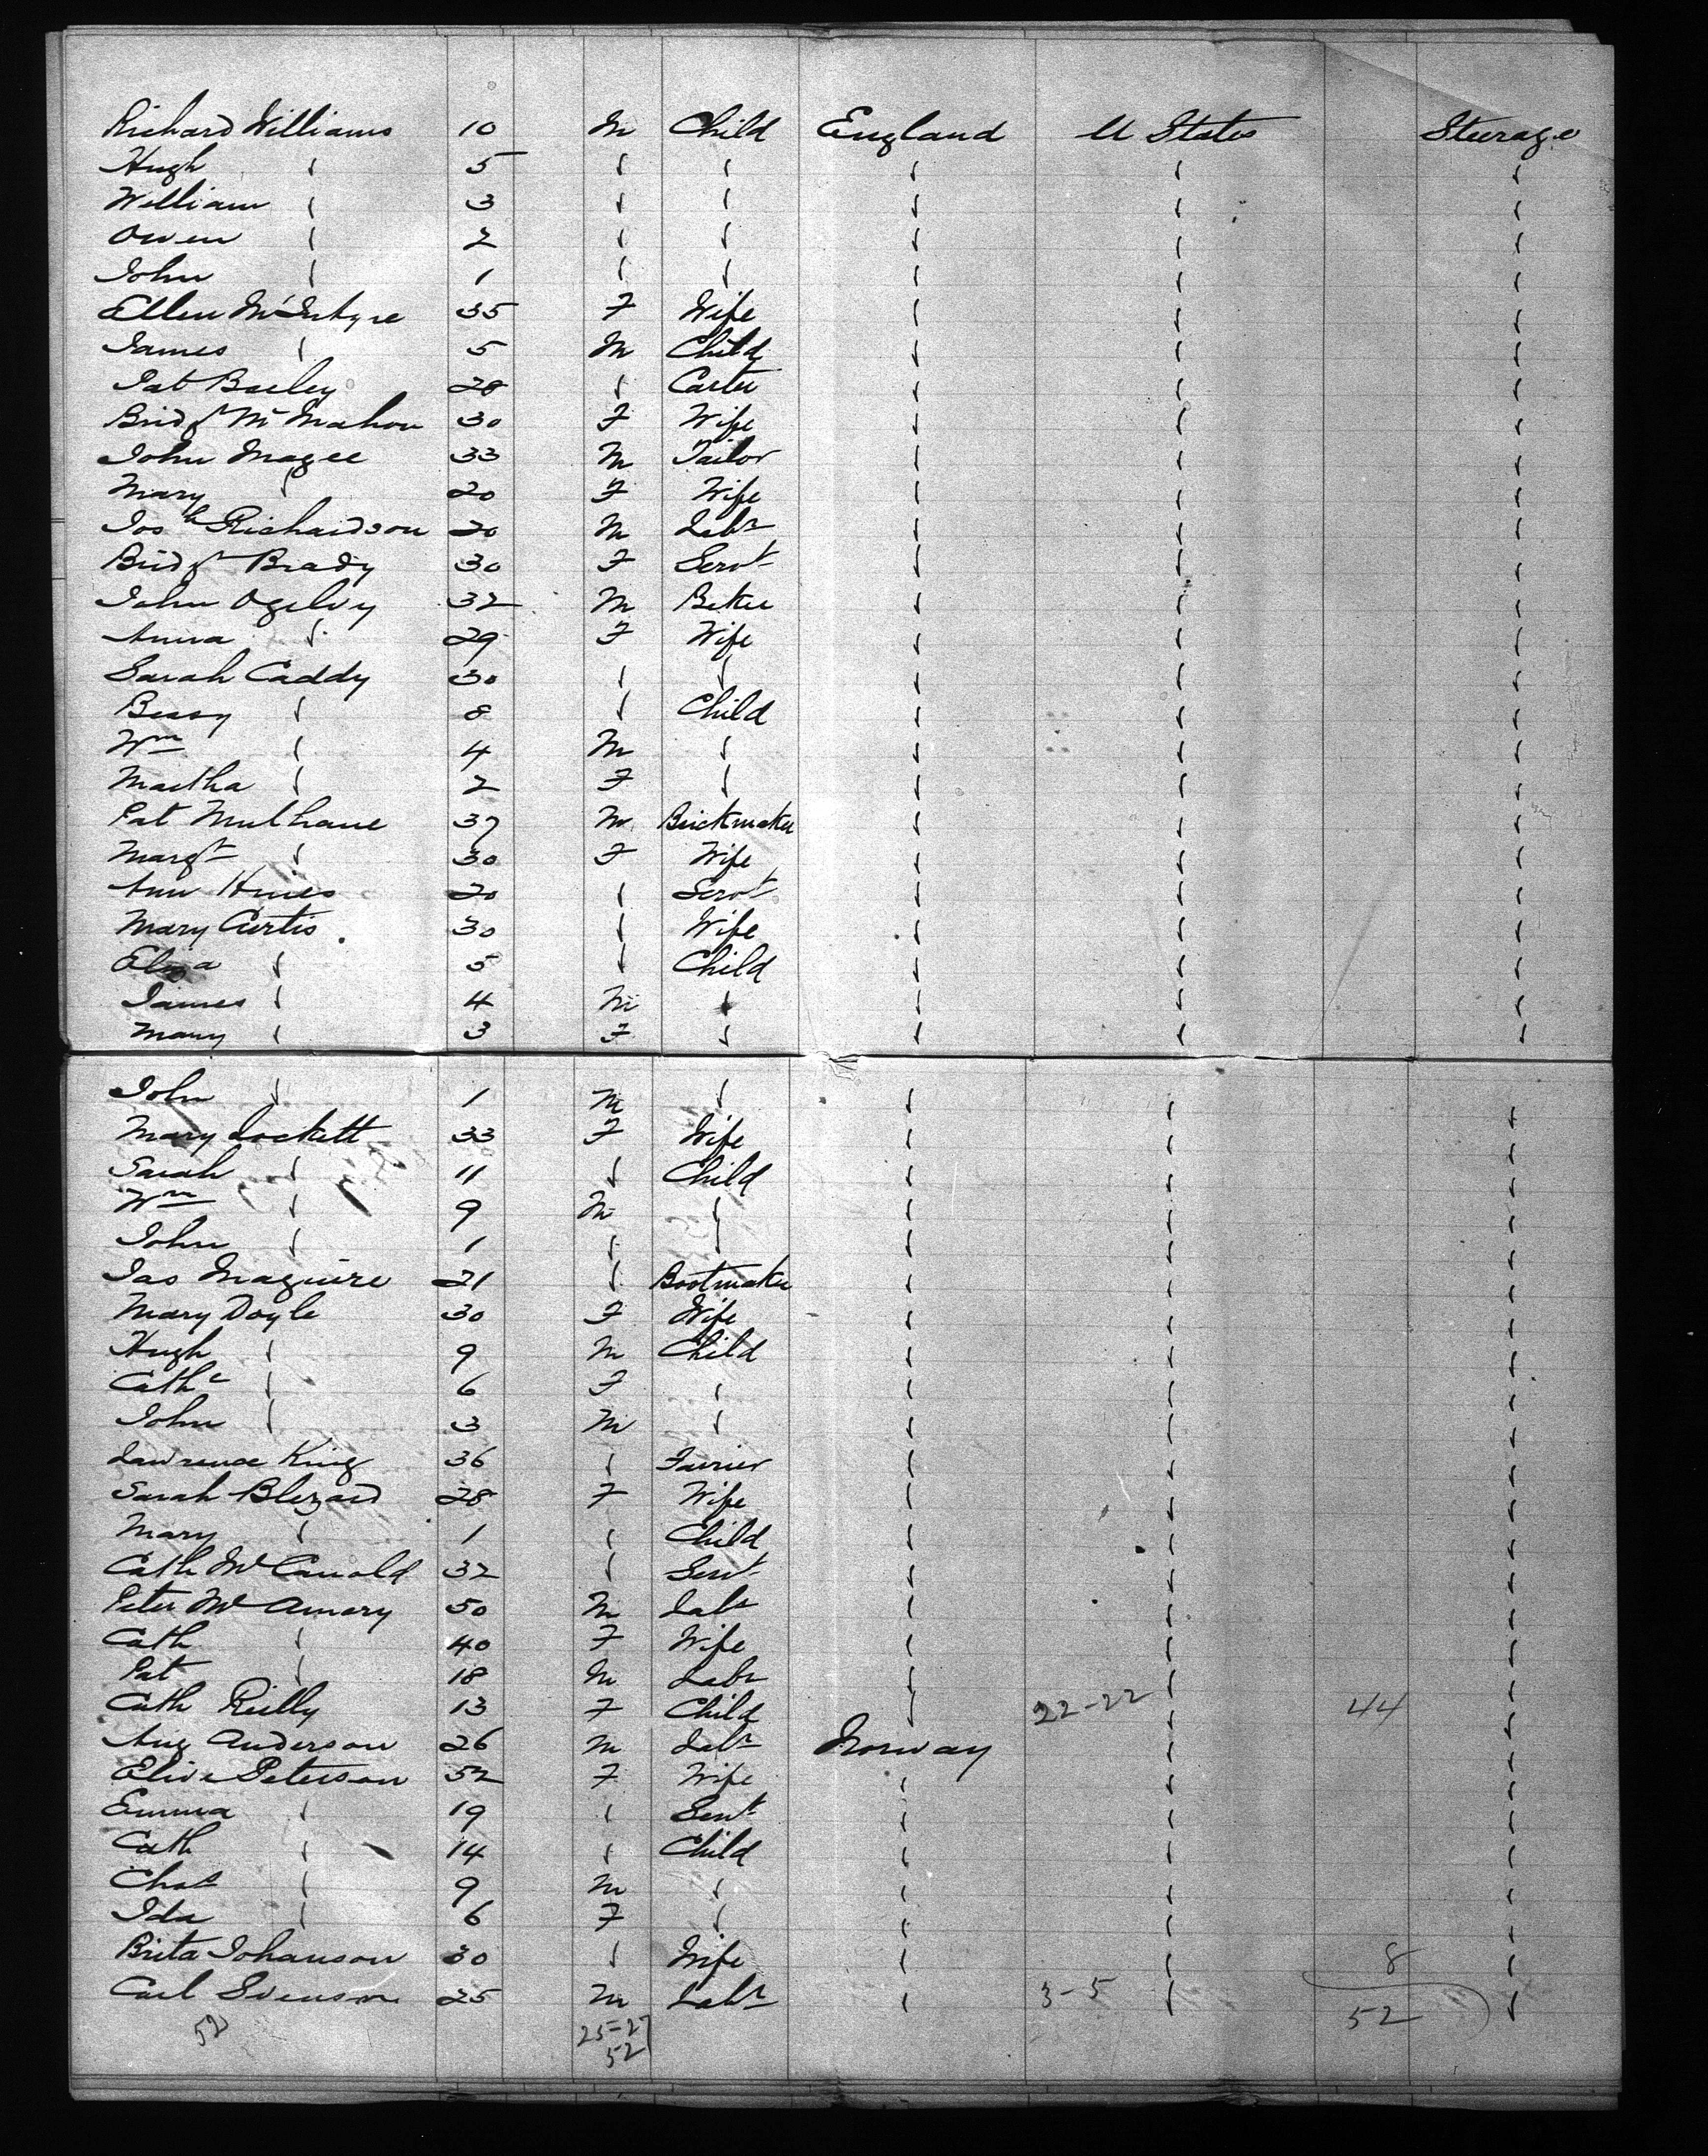 Richard Williams 10 M Child England U States Steerage
Hugh " 5 " " " " "
William " 3 " " " " "
Owen " 2 " " " " "
John " 1 " " " " "
Ellen McIntyre 35 F Wife " " "
James " 5 M Child " " "
Pat Bailey 28 " Carter " " "
Bridgt McMahon 30 F Wife " " "
John Magee 33 M Tailor " " "
Mary " 20 F Wife " " "
Josh Richardson 20 M Labr " " "
Bridgt Brady 30 F Servt " " "
John Ogelvy 32 M Baker " " "
Anna " 29 F Wife " " "
Sarah Caddy 30 " " " " "
Bessy " 8 " Child " " "
Wm " 4 M " " " "
Martha " 2 F " " " "
Pat Mulhane 37 M Brickmaker " " "
Margt " 30 F Wife " " "
Ann Hines 20 " Servt " " "
Mary Curtis 30 " Wife " " "
Eliza " 5 " Child " " "
James " 4 M " " " "
Mary " 3 F " " " "
John " 1 M " " " "
Mary Lockett 33 F Wife " " "
Sarah " 11 " Child " " "
Wm " 9 M " " " "
John " 1 " " " " "
Jas Maguire 21 " Bootmaker " " "
Mary Doyle 30 F Wife " " "
Hugh " 9 M Child " " "
Cathe " 6 F " " " "
John " 3 M " " " "
Lawrence King 36 " Furrier " " "
Sarah Blezard 28 F Wife " " "
Mary " 1 " Child " " "
Cath Mc 32 " Servt " " "
Peter McAmary 50 M Labr " " "
Cath " 40 F Wife " " "
Pat " 18 M Labr " " "
Cath Reilly 13 F Child " 22-22 " 44 "
Aug Anderson 26 M Labr Norway " "
Peterson 52 F Wife " " "
Emma " 19 " Servt " " "
Cath " 14 " Child " " "
Chas " 9 M " " " "
Ida " 6 F " " " "
Brita Johanson 30 " Wife " " 8 "
Carl Svenson 25 M Labr " 3-5 " 52 "
52 25-27
52